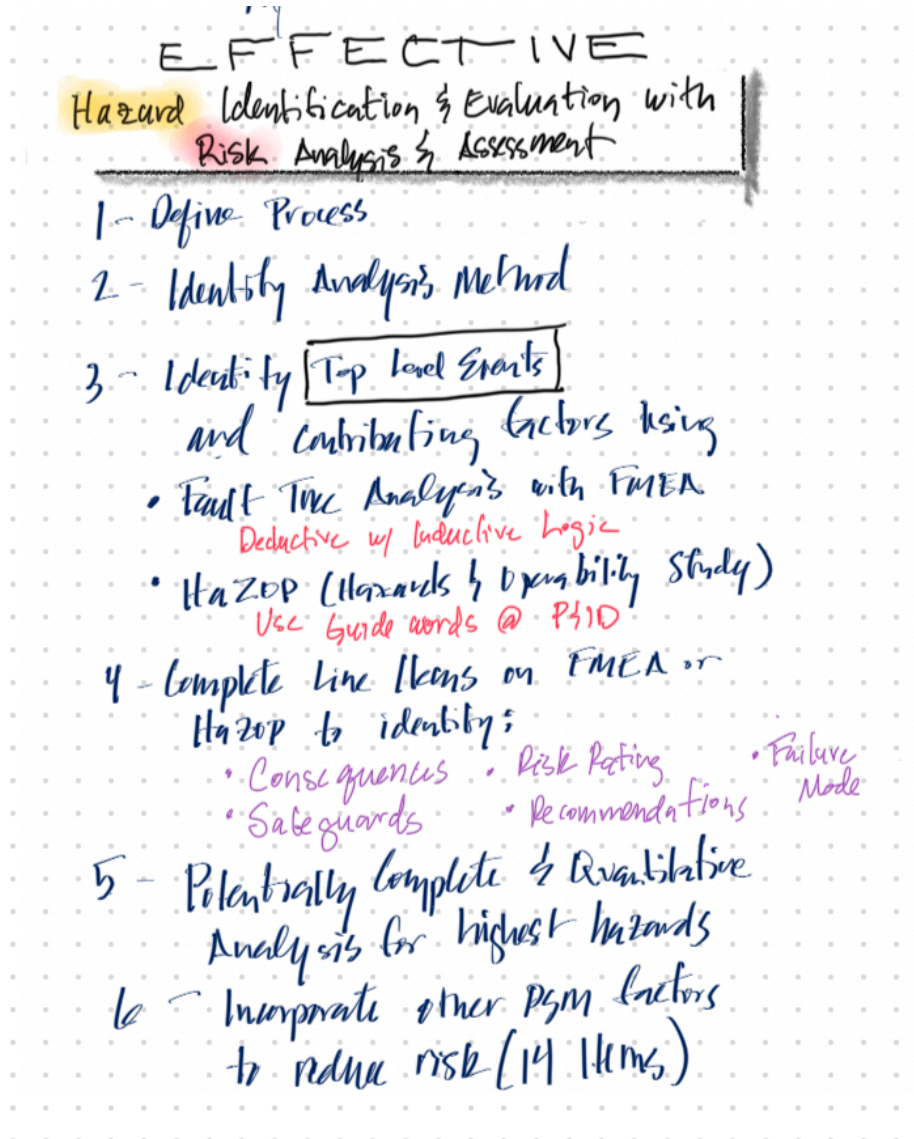 EFFECTIVE
Hazard Identification & Evaluation with
Risk Analysis & Assessment
1 - Define Process
2 - Identify Analysis Method
3 - Identify Top Level Events
and contributing factors using
• Fault Tree Analysis with FMEA
Deductive w/ Inductive Logic
• HaZOP (Hazards & Operability Study)
Use Guide words @ P&ID
4 - Complete Line Items on FMEA or
HazOP to identify:
• Consequences • Risk Rating • Failure Mode
• Safeguards • Recommendations
5 - Potentially Complete & Quantitative
Analysis for highest hazards
6 - Incorporate other PSM factors
to reduce risk (14 Items)